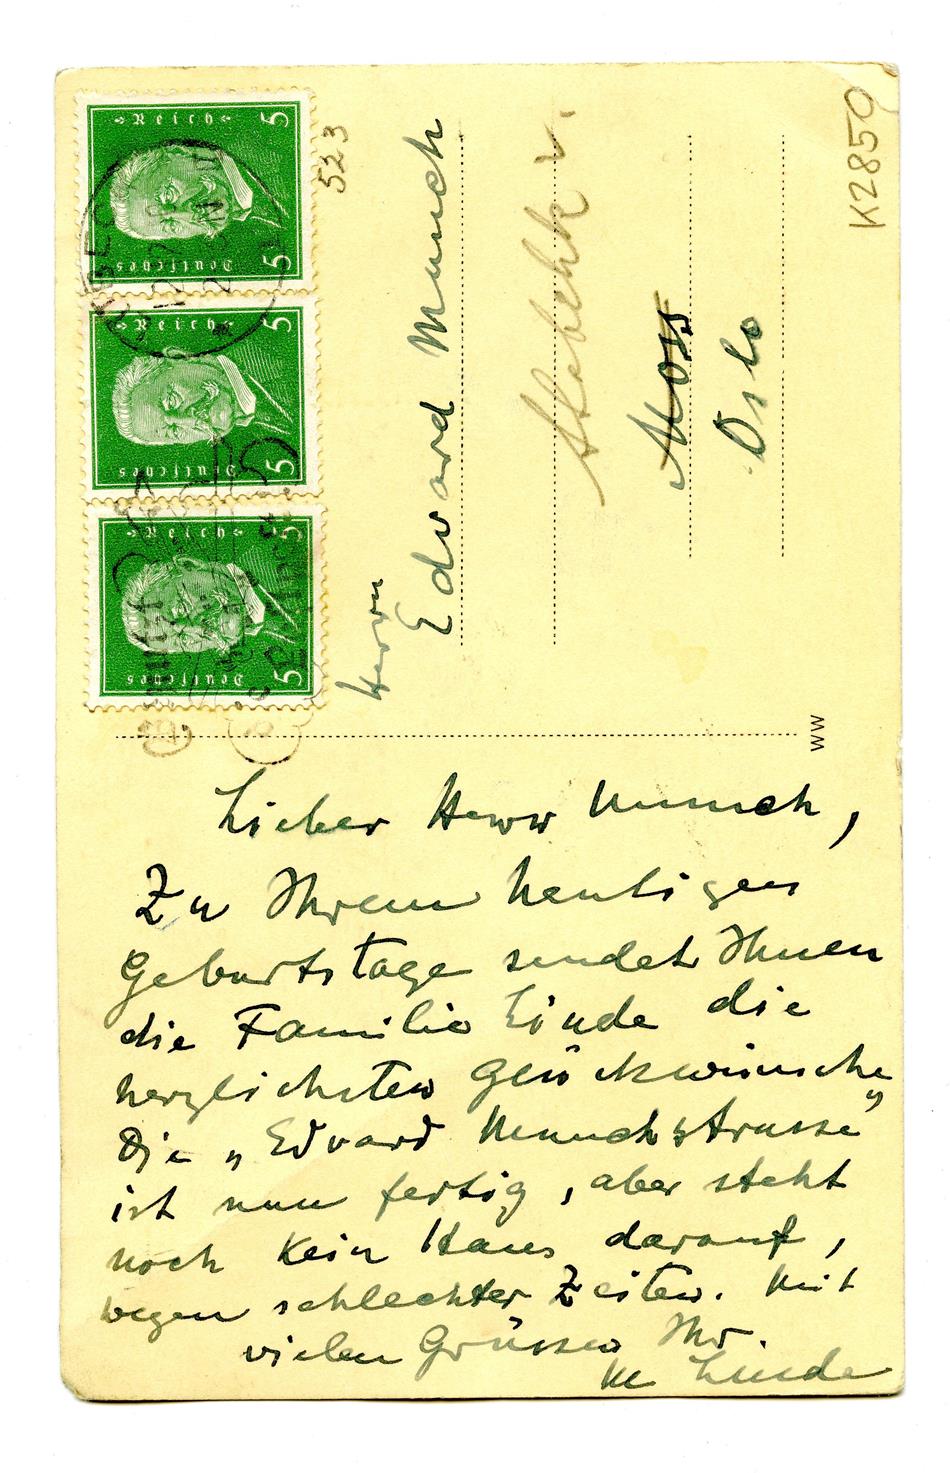 Lieber Herr Munch,
Zu Ihrem heutigen
Geburtstage sendet Ihnen
die Familie Linde die
herzlichsten Glückwünsche
Die „Edvard Munchstrasse"
ist nun fertig, aber steht
noch kein Haus darauf,
wegen schlechter Zeiten. Mit
vielen Grüssen Ihr.
M Linde
WW
Herrn
Edvard Munch
Moss
Oslo
523
K2859
Deutsches Reich
5 5
Deutsches Reich
5 5
Deutsches Reich
5 5